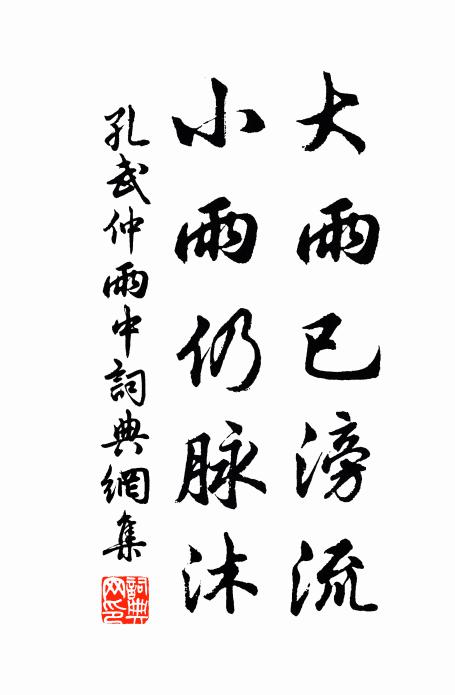 大雨已滂流
小雨仍脉沐
孔武仲雨中詞典網集
詞典網印